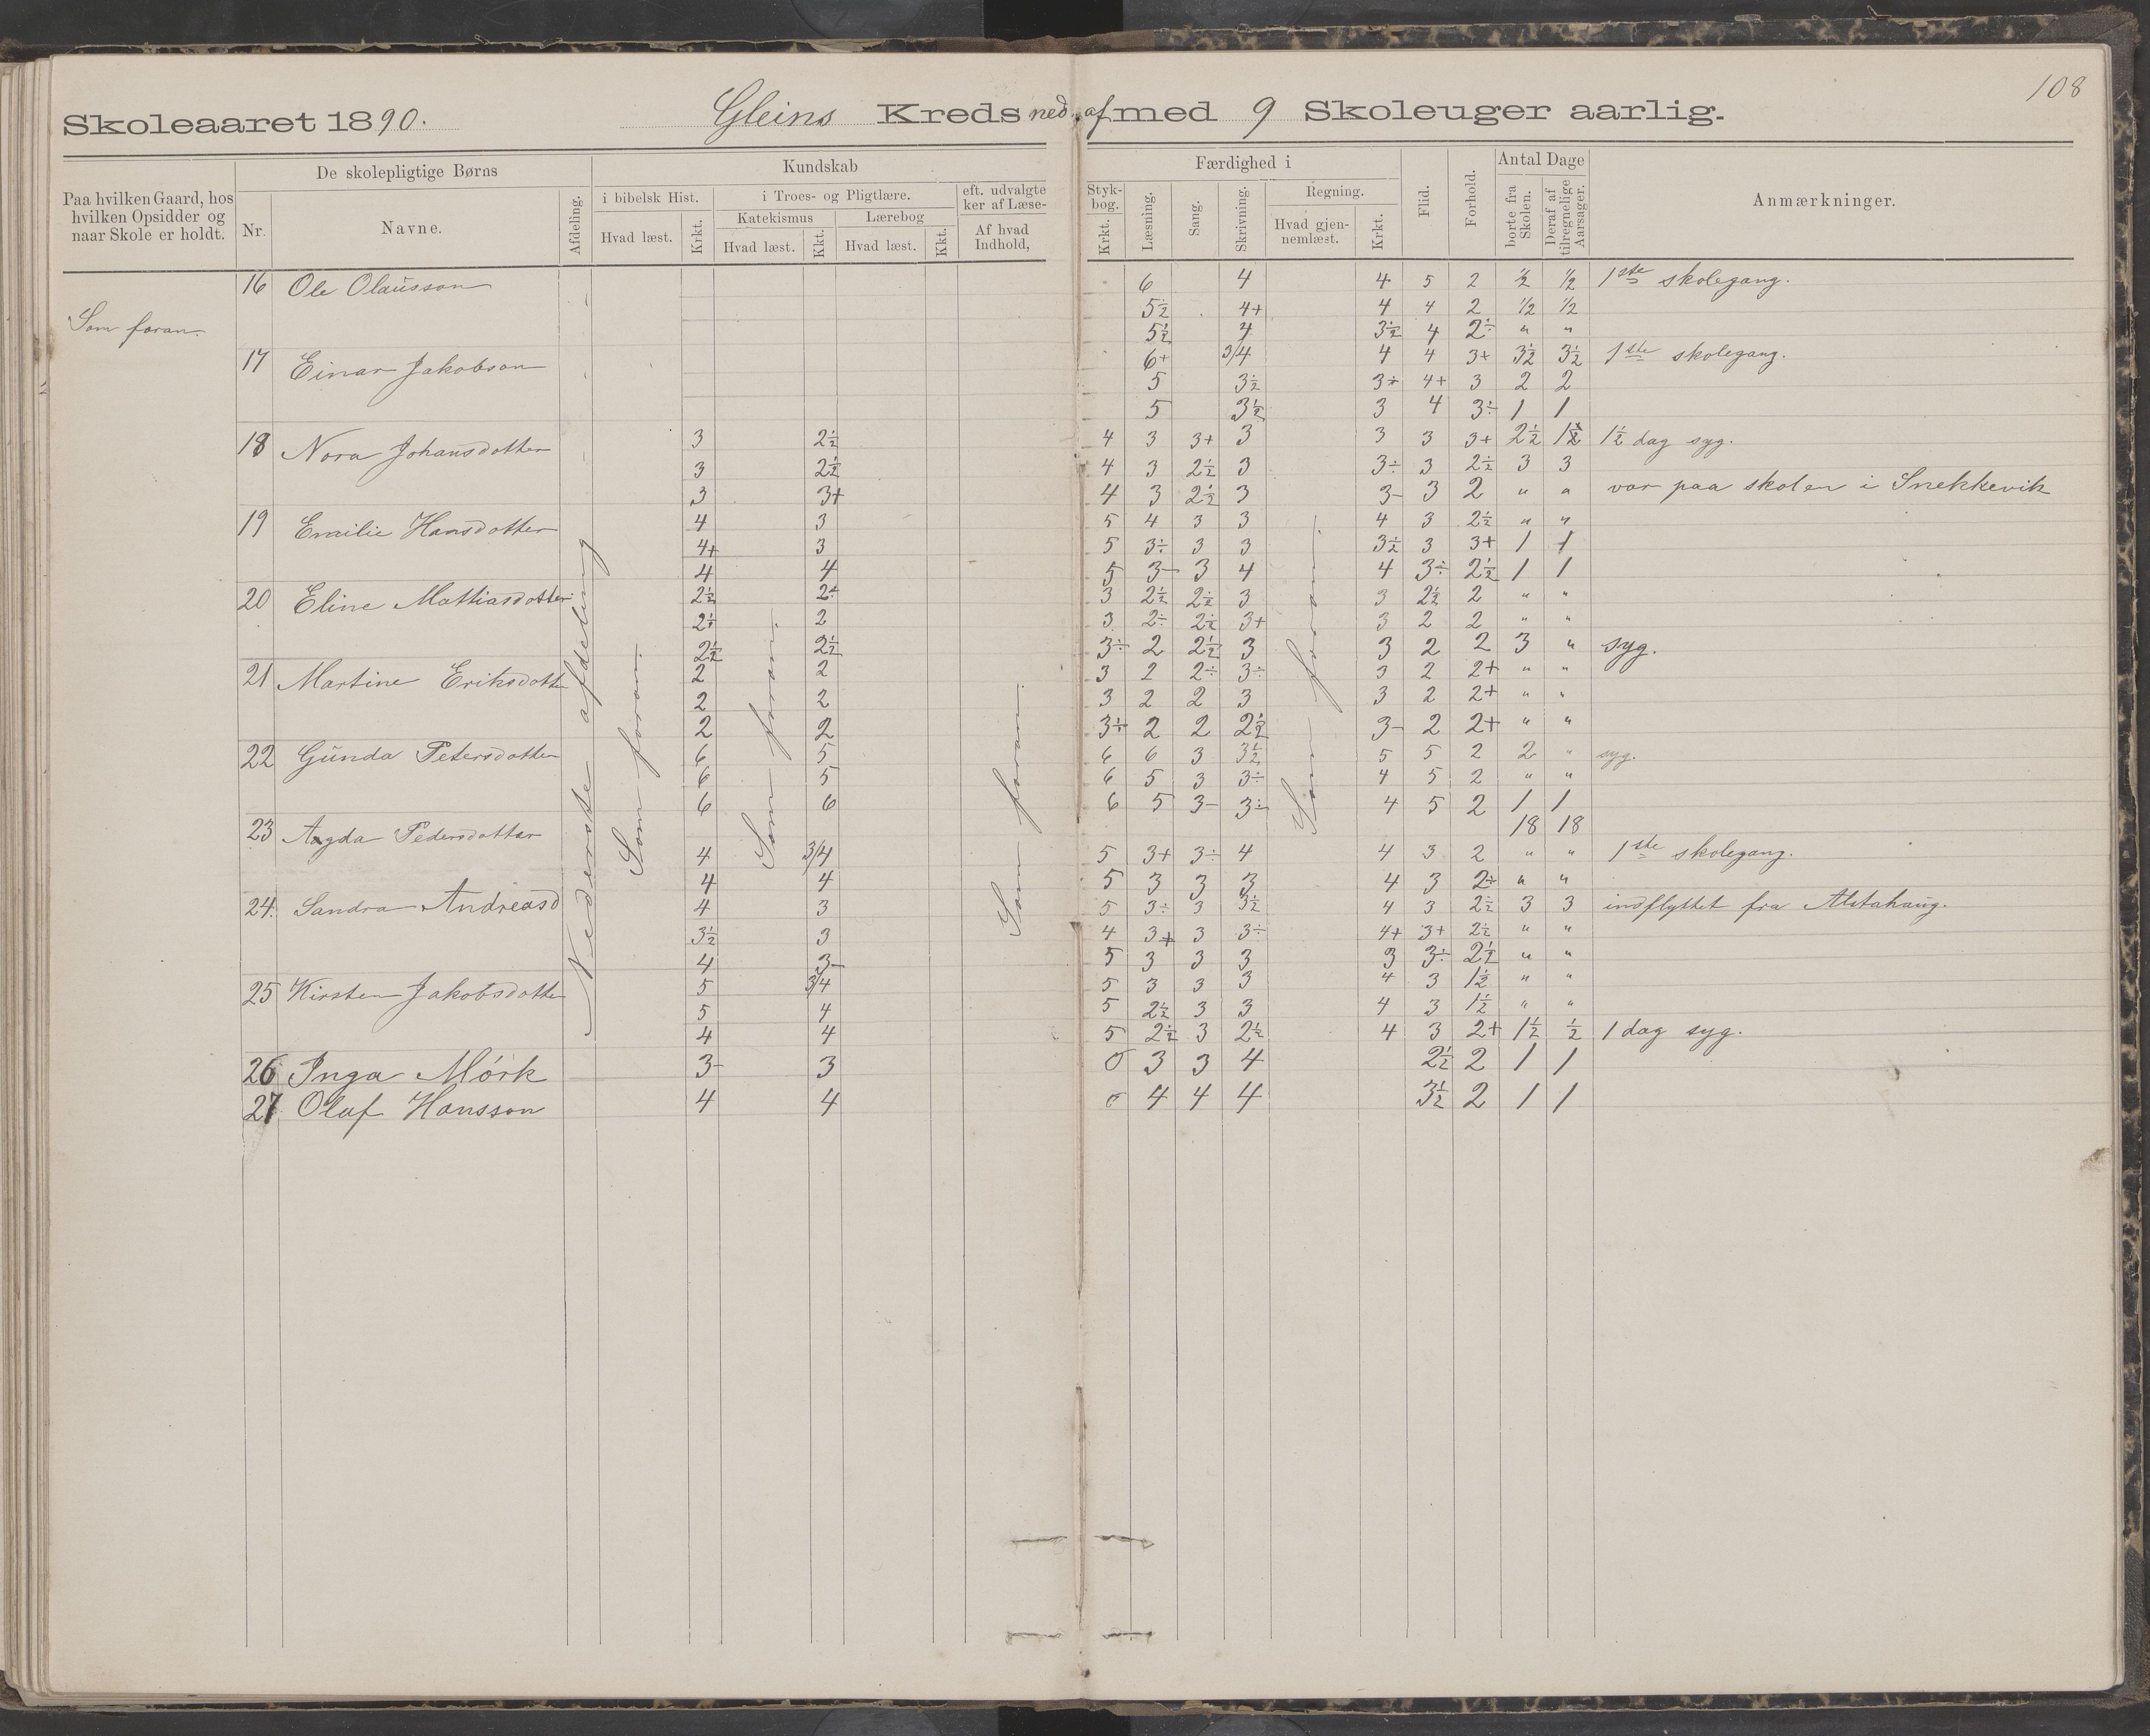 108
Skoleaaret 1890. Gleins Kreds ned. af med 9 Skoleuger aarlig.
Paa hvilken Gaard, hos hvilken Opsidder og naar Skole er holdt.
De skolepligtige Børns
Nr. Navne. Afdeling.
Kundskab
i bibelsk Hist. i Troes- og Pligtlære. eft. udvalgte ker af Læse-
Katekismus Lærebog
Hvad læst. Krkt. Hvad læst. Kkt. Hvad læst. Kkt. Af hvad Indhold,
Færdighed i
Styk-bog. Krkt. Læsning. Sang. Skrivning. Regning. Hvad gjen-nemlæst. Krkt. Flid. Forhold.
Antal Dage
borte fra Skolen. Deraf af tilregnelige Aarsager.
Anmærkninger.
Som foran.
Nederste afdeling
Som foran.
Som foran.
Som foran.
Som foran.
16 Ole Olausson 6 4 4 5 2 ½ ½ 1ste skolegang.
5½ 4+ 4 4 2 ½ ½
5½ 4 3½ 4 2÷ " "
17 Einar Jakobson 6+ 3/4 4 4 3+ 3½ 3½ 1ste skolegang.
5 3½ 3÷ 4+ 3 2 2
5 3½ 3 4 3÷ 1 1
18 Nora Johansdotter 3 2½ 4 3 3+ 3 3 3 3+ 2½ 1½ 1½ dag syg.
3 2½ 4 3 2½ 3 3÷ 3 2½ 3 3
3 3+ 4 3 2½ 3 3- 3 2 " " var paa skolen i Snekkevik
19 Emilie Hansdotter 4 3 5 4 3 3 4 3 2½ " "
4+ 3 5 3÷ 3 3 3½ 3 3+ 1 1
4 4 5 3- 3 4 4 3÷ 2½ 1 1
20 Eline Mattiasdotter 2½ 2÷ 3 2½ 2½ 3 3 2½ 2 " "
2÷ 2 3 2÷ 2½ 3+ 3 2 2 " "
2½ 2½ 3÷ 2 2½ 3 3 2 2 3 " syg.
21 Martine Eriksdotter 2 2 3 2 2÷ 3÷ 3 2 2+ " "
2 2 3 2 2 3 3 2 2+ " "
2 2 3÷ 2 2 2½ 3- 2 2+ " "
22 Gunda Petersdotter 6 5 6 6 3 3½ 5 5 2 2 " syg.
6 5 6 5 3 3÷ 4 5 2 " "
6 6 6 5 3- 3÷ 4 5 2 1 1
23 Aagda Pedersdotter 18 18
4 3/4 5 3+ 3÷ 4 4 3 2 " " 1ste skolegang.
4 4 5 3 3 3 4 3 2÷ " "
24. Sandra Andreasd 4 3 5 3÷ 3 3½ 4 3 2½ 3 3 indflyttet fra Alstahaug.
3½ 3 4 3+ 3 3÷ 4+ 3+ 2½ " "
4 3- 5 3 3 3 3 3÷ 2½ " "
25 Kirsten Jakobsdotter 5 3/4 5 3 3 3 4 3 1½ " "
5 4 5 2½ 3 3 4 3 1½ " "
4 4 5 2½ 3 2½ 4 3 2+ 1½ ½ 1 dag syg.
26 Inga Mörk 3- 3 0 3 3 4 2½ 2 1 1
27 Olaf Hansson 4 4 0 4 4 4 3½ 2 1 1